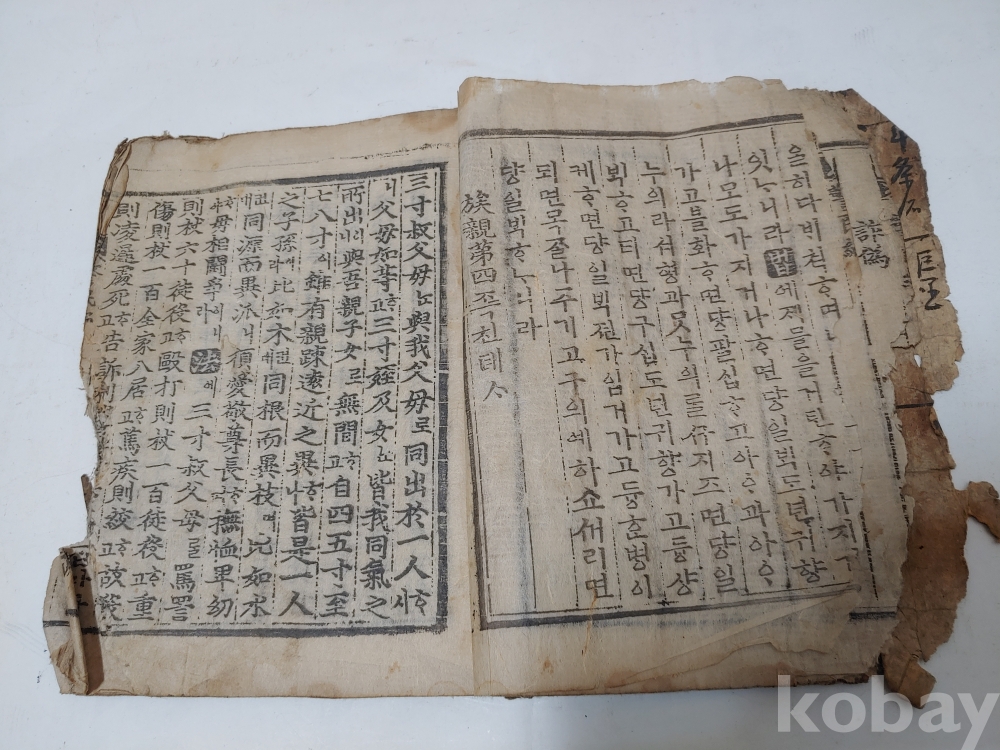 을히다비쳔ᄒᆞ며
잇ᄂᆞ니라法에졔믈을거틴ᄒᆞ야가지
나모도가지거나ᄒᆞ면댱일ᄇᆡᆨ도년귀향
가고틀화ᄒᆞ면댱팔십ᄒᆞ고아ᄋᆞ과아ᄋᆞ
누의라셔형과ᄆᆞᆺ누의를ᄭᅮ지즈면댱일
ᄇᆡᆨᄒᆞ고티면댱구십도년귀향가고듕샹
케ᄒᆞ면댱일ᄇᆡᆨ젼가입거가고듕ᄒᆞᆫ병이
되면목졸나주기고구의예하쇼셰리면
댱일ᄇᆡᆨᄒᆞᄂᆞ니라
族親第四족친뎨ᄉᆞ
三寸叔父母ᄂᆞᆫ與我父母로同出於一人ᄒᆞ시
니父母如等ᄒᆞ고三寸姪及女ᄂᆞᆫ皆我同氣之
所出이니與吾親子女로無間ᄒᆞ고自四五寸至
七八寸이雖有親疎遠近之異ᄒᆞ나皆是一人
之子孫이라比如木컨댄同根而異枝며比如水
컨댄同源而異派니須愛敬尊長ᄒᆞ며撫恤卑幼
ᄒᆞ야毋相鬪爭이니라法에三寸叔父母를罵詈
則杖六十徒役ᄒᆞ고毆打則杖一百徒役ᄒᆞ고重
傷則杖一百全家入居ᄒᆞ고篤疾則絞ᄒᆞ고故殺
則凌遲處死ᄒᆞ고告訴則
kobay